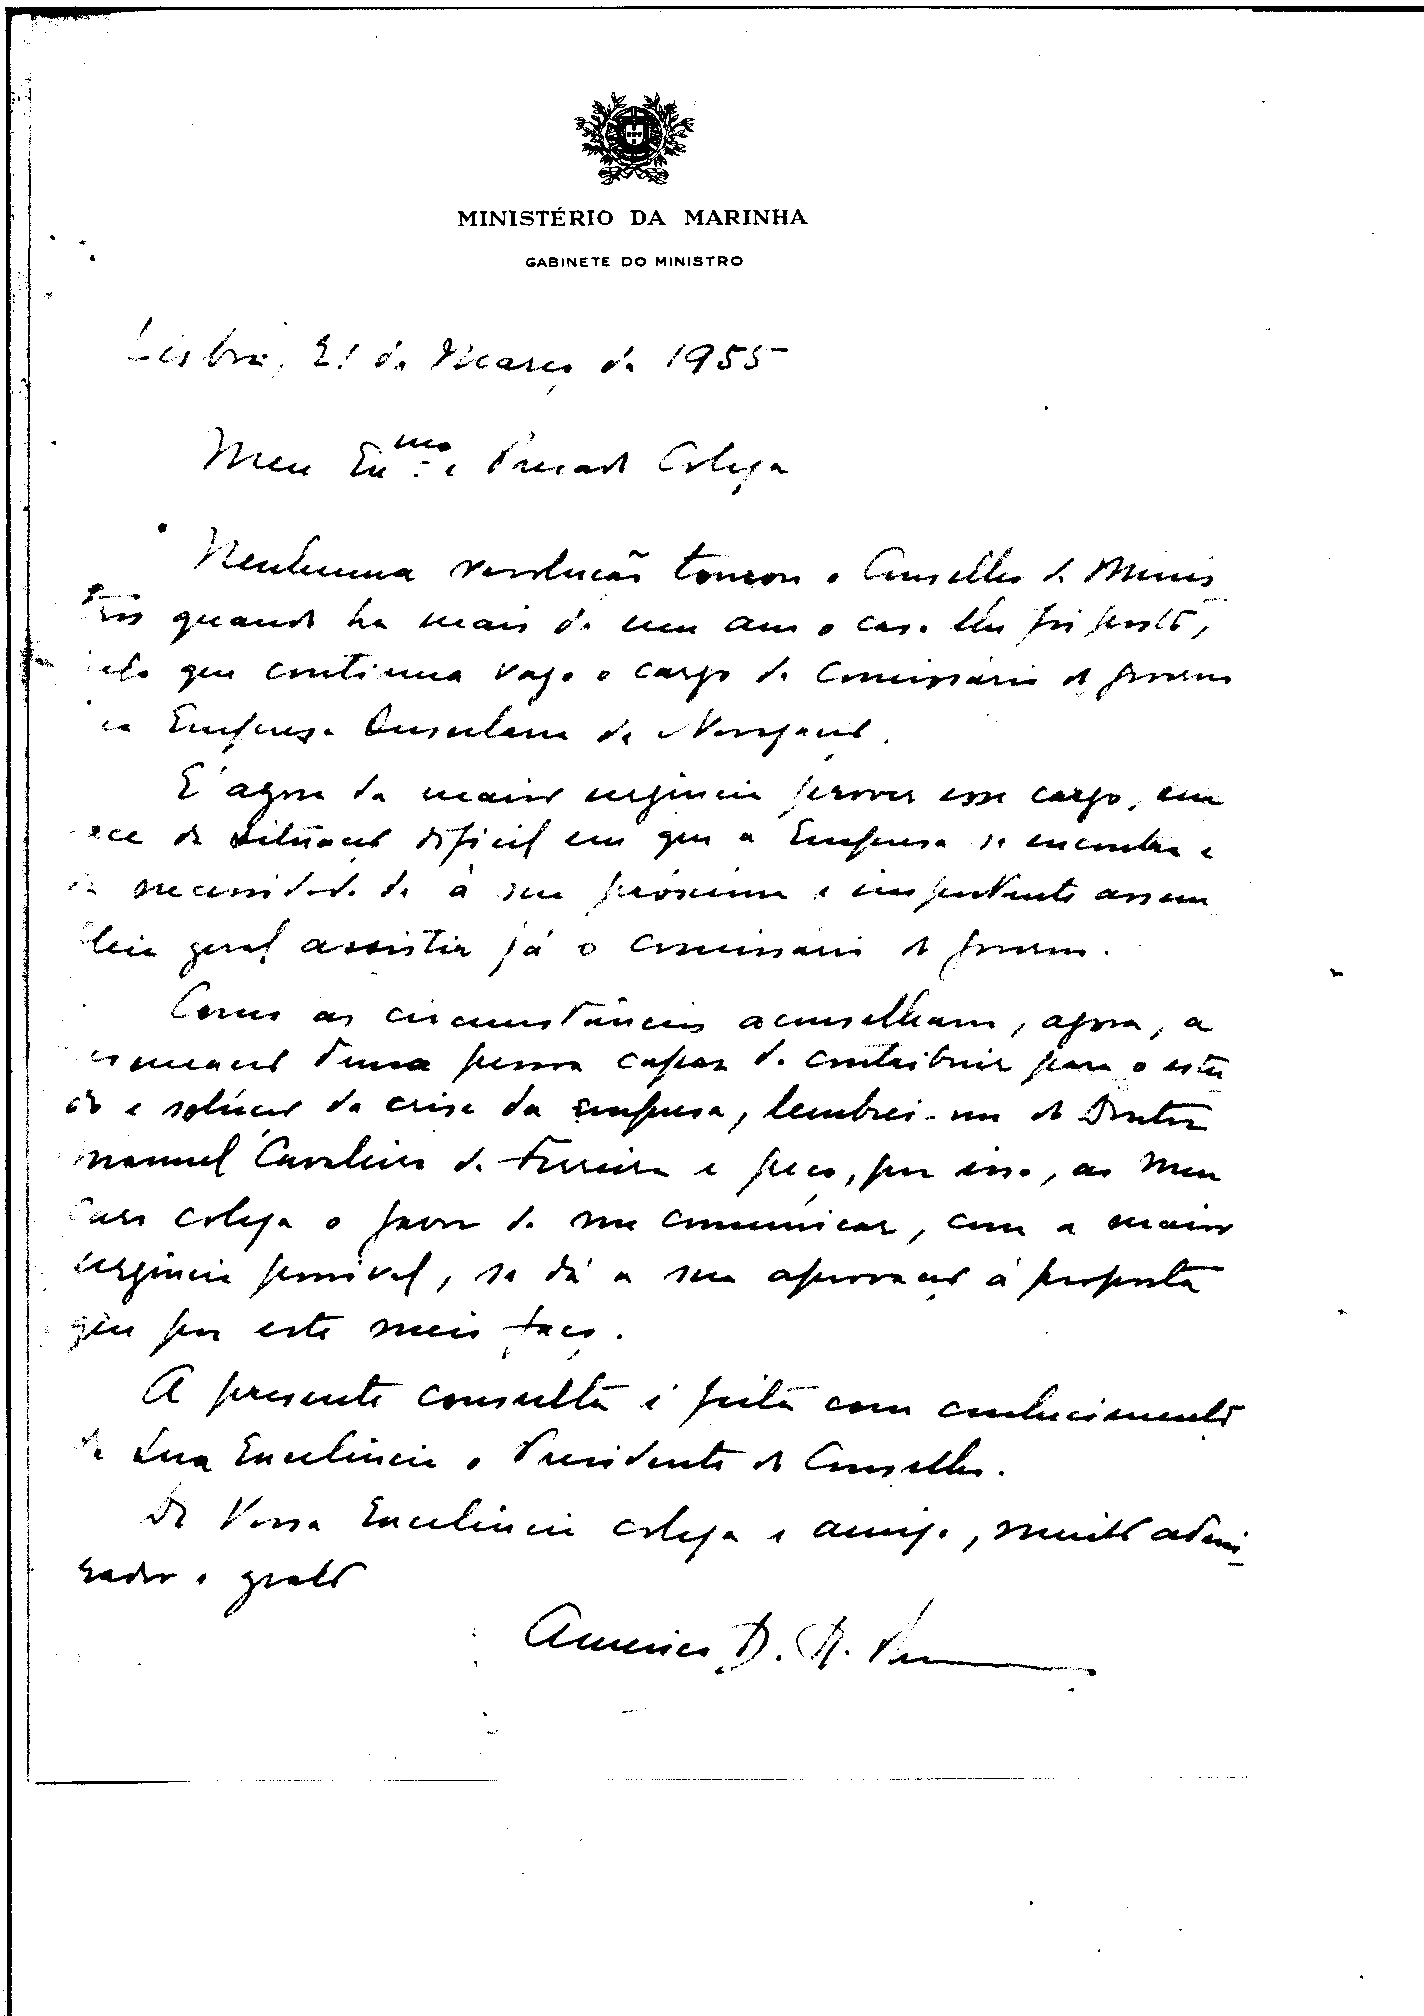 MINISTÉRIO DA MARINHA
GABINETE DO MINISTRO
Lisboa, 21 de Março de 1955
Meu Exmo e Prezado Colega
Nenhuma resolução tomou o Conselho de Minis
tros quando ha mais de um ano o caso lhe foi posto,
pelo que continua vago o cargo de Comissário do Governo
na Empresa Insulana de Navegação.
É agora da maior urgência prover esse cargo, em
face da situação dificil em que a Empresa se encontra e
da necessidade de à sua próxima e importante assem
bleia geral assistir já o comissario do governo.
Como as circunstâncias aconselham, agora, a
nomeação duma pessoa capaz de contribuir para o estu
do e solução da crise da empresa, lembrei-me do Doutor
Manuel Cavaleiro de Ferreira e peço, por isso, ao Meu
Caro colega o favor de me comunicar, com a maior
urgência possivel, se dá a sua aprovação à proposta
que por este meio faço.
A presente consulta é feita com conhecimento
de Sua Excelência o Presidente do Conselho.
De Vossa Excelência colega e amigo, muito admi-
rador e grato
Americo D. R.